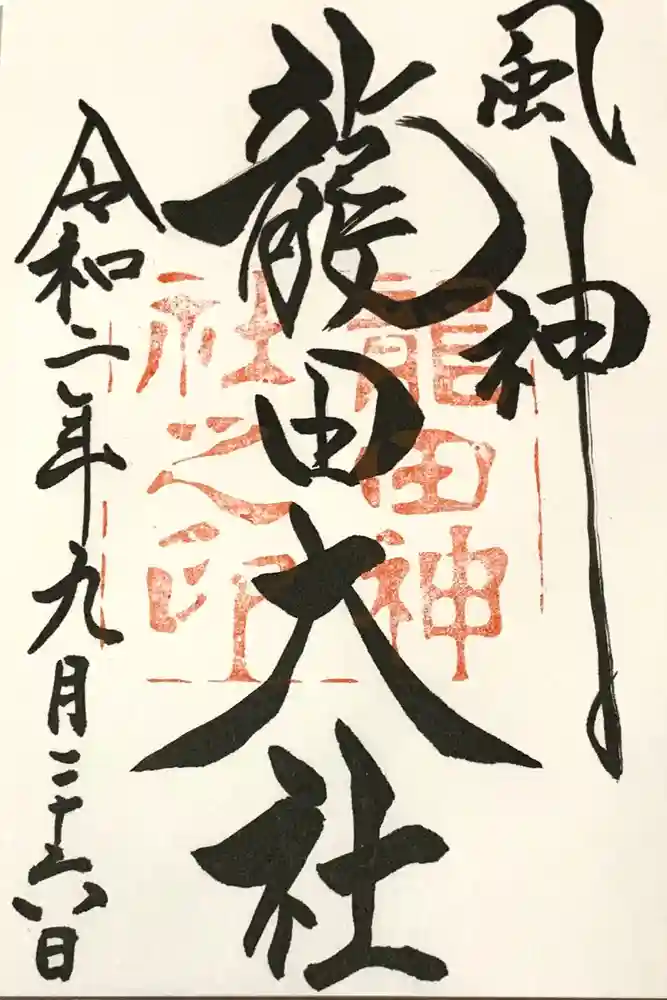 風神
龍田大社
令和二年九月二十六日
龍田神
社之印